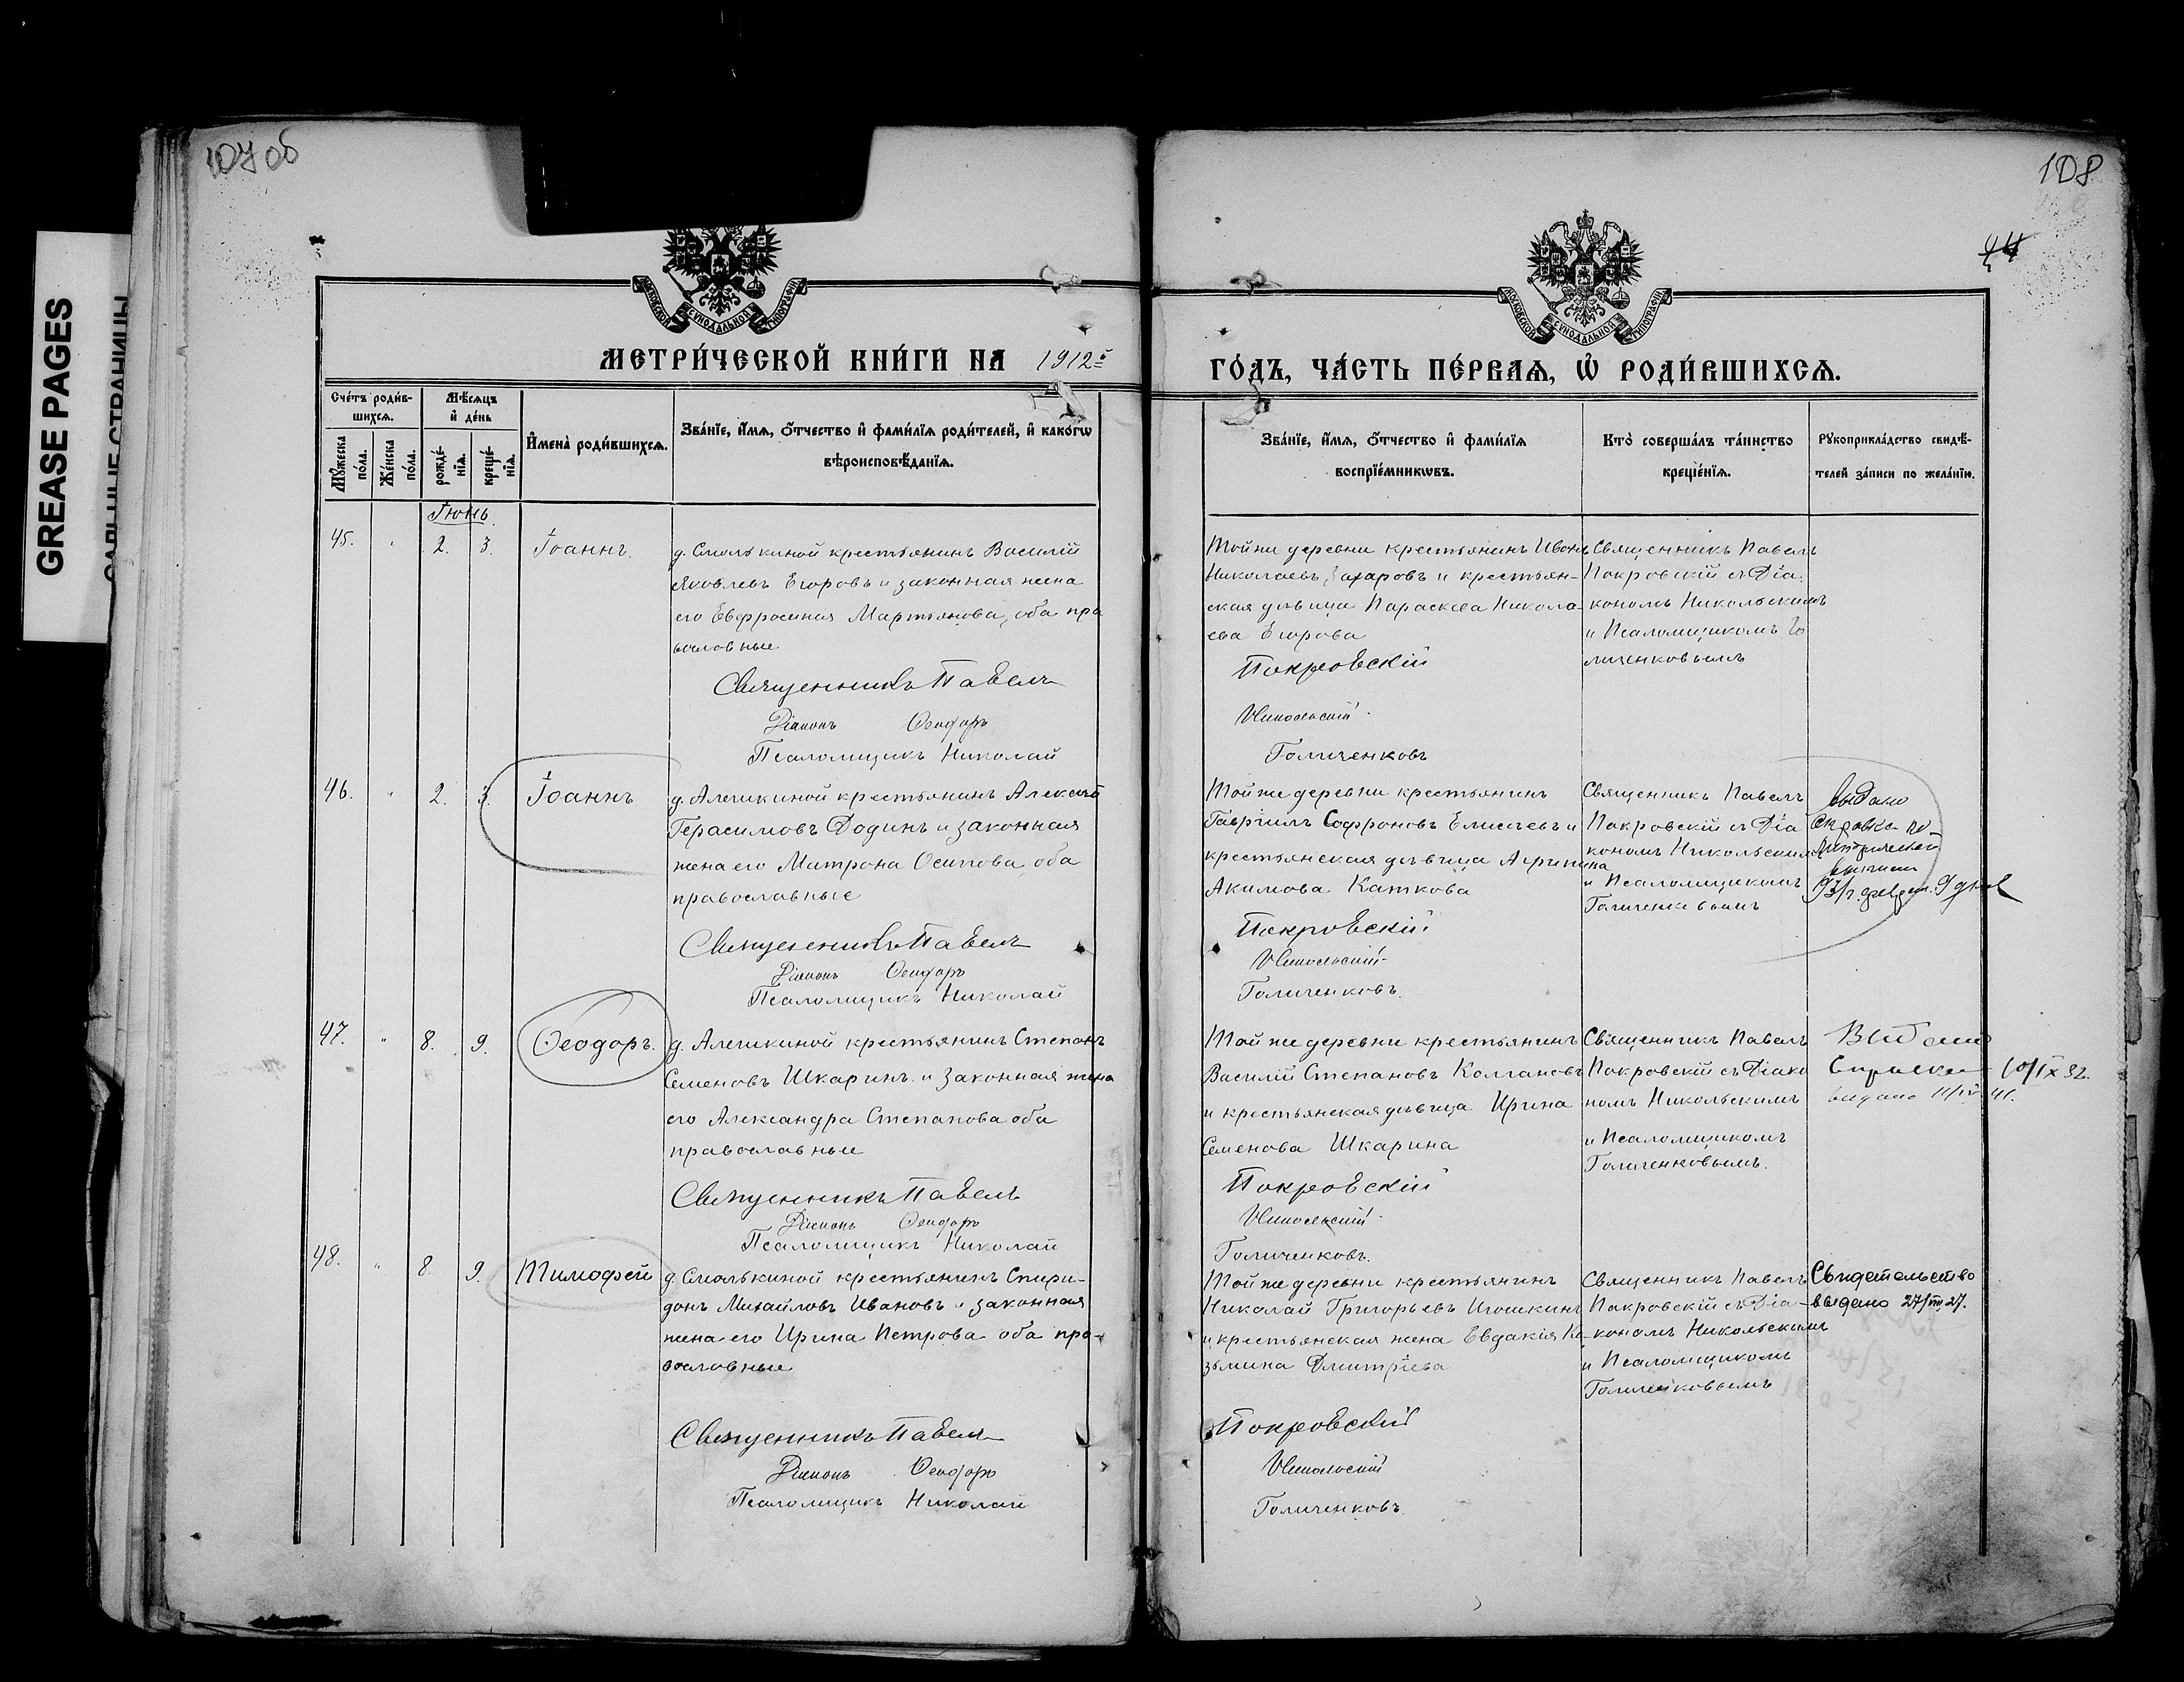 107 об
108
44
GREASE PAGES
МОСКОВСКОЙ СѴНОДАЛЬНОЙ ТИПОГРАФІИ
МОСКОВСКОЙ СѴНОДАЛЬНОЙ ТИПОГРАФІИ
МЕТРИ́ЧЕСКОЙ КНИ́ГИ НА 1912й
ГО́ДЪ, ЧА́СТЬ ПЕ́РВАѦ, Ѡ РОДИ́ВШИХСѦ.
Сче́тъ роди́в-
шихсѧ.
Мѣ́сѧцъ
и де́нь
Мꙋ́жеска
по́ла.
Же́нска
по́ла.
рожде́-
нїѧ.
креще́-
нїѧ.
Имена̀ роди́вшихсѧ.
Зва́нїе, и́мѧ, о́тчество и фами́лїѧ роди́телей, и како́гѡ
вѣроисповѣ́данїѧ.
Зва́нїе, и́мѧ, о́тчество и фами́лїѧ
воспрїе́мникѡвъ.
Кто̀ соверша́лъ та́инство
креще́нїѧ.
Рꙋкоприкла́дство свидѣ́-
телей за́писи по жела́нїю.
Іюнь.
45. " 2. 3. Іоаннъ.
д. Смолькиной крестьянинъ Василій
Яковлевъ Егоровъ и законная жена
его Евфросинія Мартьянова, оба пра
вославные
Священникъ Павелъ
Діаконъ Ѳеодоръ
Псаломщикъ Николай
Той же деревни крестьянинъ Иванъ
Николаевъ Захаровъ и крестьян-
ская дѣвица Параскева Никола-
ева Егорова
Покровскій
Никольскій
Голиченковъ
Священникъ Павелъ
Покровскій съ Діа-
кономъ Никольскимъ
и Псаломщикомъ Го
личенковымъ
46. " 2. 3. Іоаннъ
д. Алешкиной крестьянинъ Алексѣй
Герасимовъ Додинъ и законная
жена его Матрона Осипова оба
православные
Священникъ Павелъ
Діаконъ Ѳеодоръ
Псаломщикъ Николай
Той же деревни крестьянинъ
Гавріилъ Софроновъ Елисѣевъ и
крестьянская дѣвица Агрипина
Акимова Каткова
Покровскій
Никольскій
Голиченковъ.
Священникъ Павелъ
Покровскій съ Діа
кономъ Никольскимъ
и Псаломщикомъ
Голиченковымъ
выдано
47. " 8. 9. Ѳеодоръ.
д. Алешкиной крестьянинъ Степанъ
Семеновъ Шкаринъ и законная жена
его Александра Степанова оба
православные
Священникъ Павелъ
Діаконъ Ѳеодоръ
Псаломщикъ Николай
Той же деревни крестьянинъ
Василій Степановъ Колгановъ
и крестьянская дѣвица Ирина
Семенова Шкарина
Покровскій
Никольскій
Голиченковъ.
Священникъ Павелъ
Покровскій съ Діако
номъ Никольскимъ
и Псаломщикомъ
Голиченковымъ.
Выдана
Справка 10/IX 32.
выдано 11/IV 41.
48. " 8. 9. Тимофей
д. Смолькиной крестьянинъ Спири-
донъ Михайловъ Ивановъ и законная
жена его Ирина Петрова оба пра-
вославные
Священникъ Павелъ
Діаконъ Ѳеодоръ
Псаломщикъ Николай
Той же деревни крестьянинъ
Николай Григорьевъ Игошкинъ
и крестьянская жена Евдакія Ко-
зьмина Дмитріева
Покровскій
Никольскій
Голиченковъ.
Священникъ Павелъ
Покровскій съ Діа-
кономъ Никольскимъ
и Псаломщикомъ
Голиченковымъ
Свидетельство
выдано 27/VIII 27.